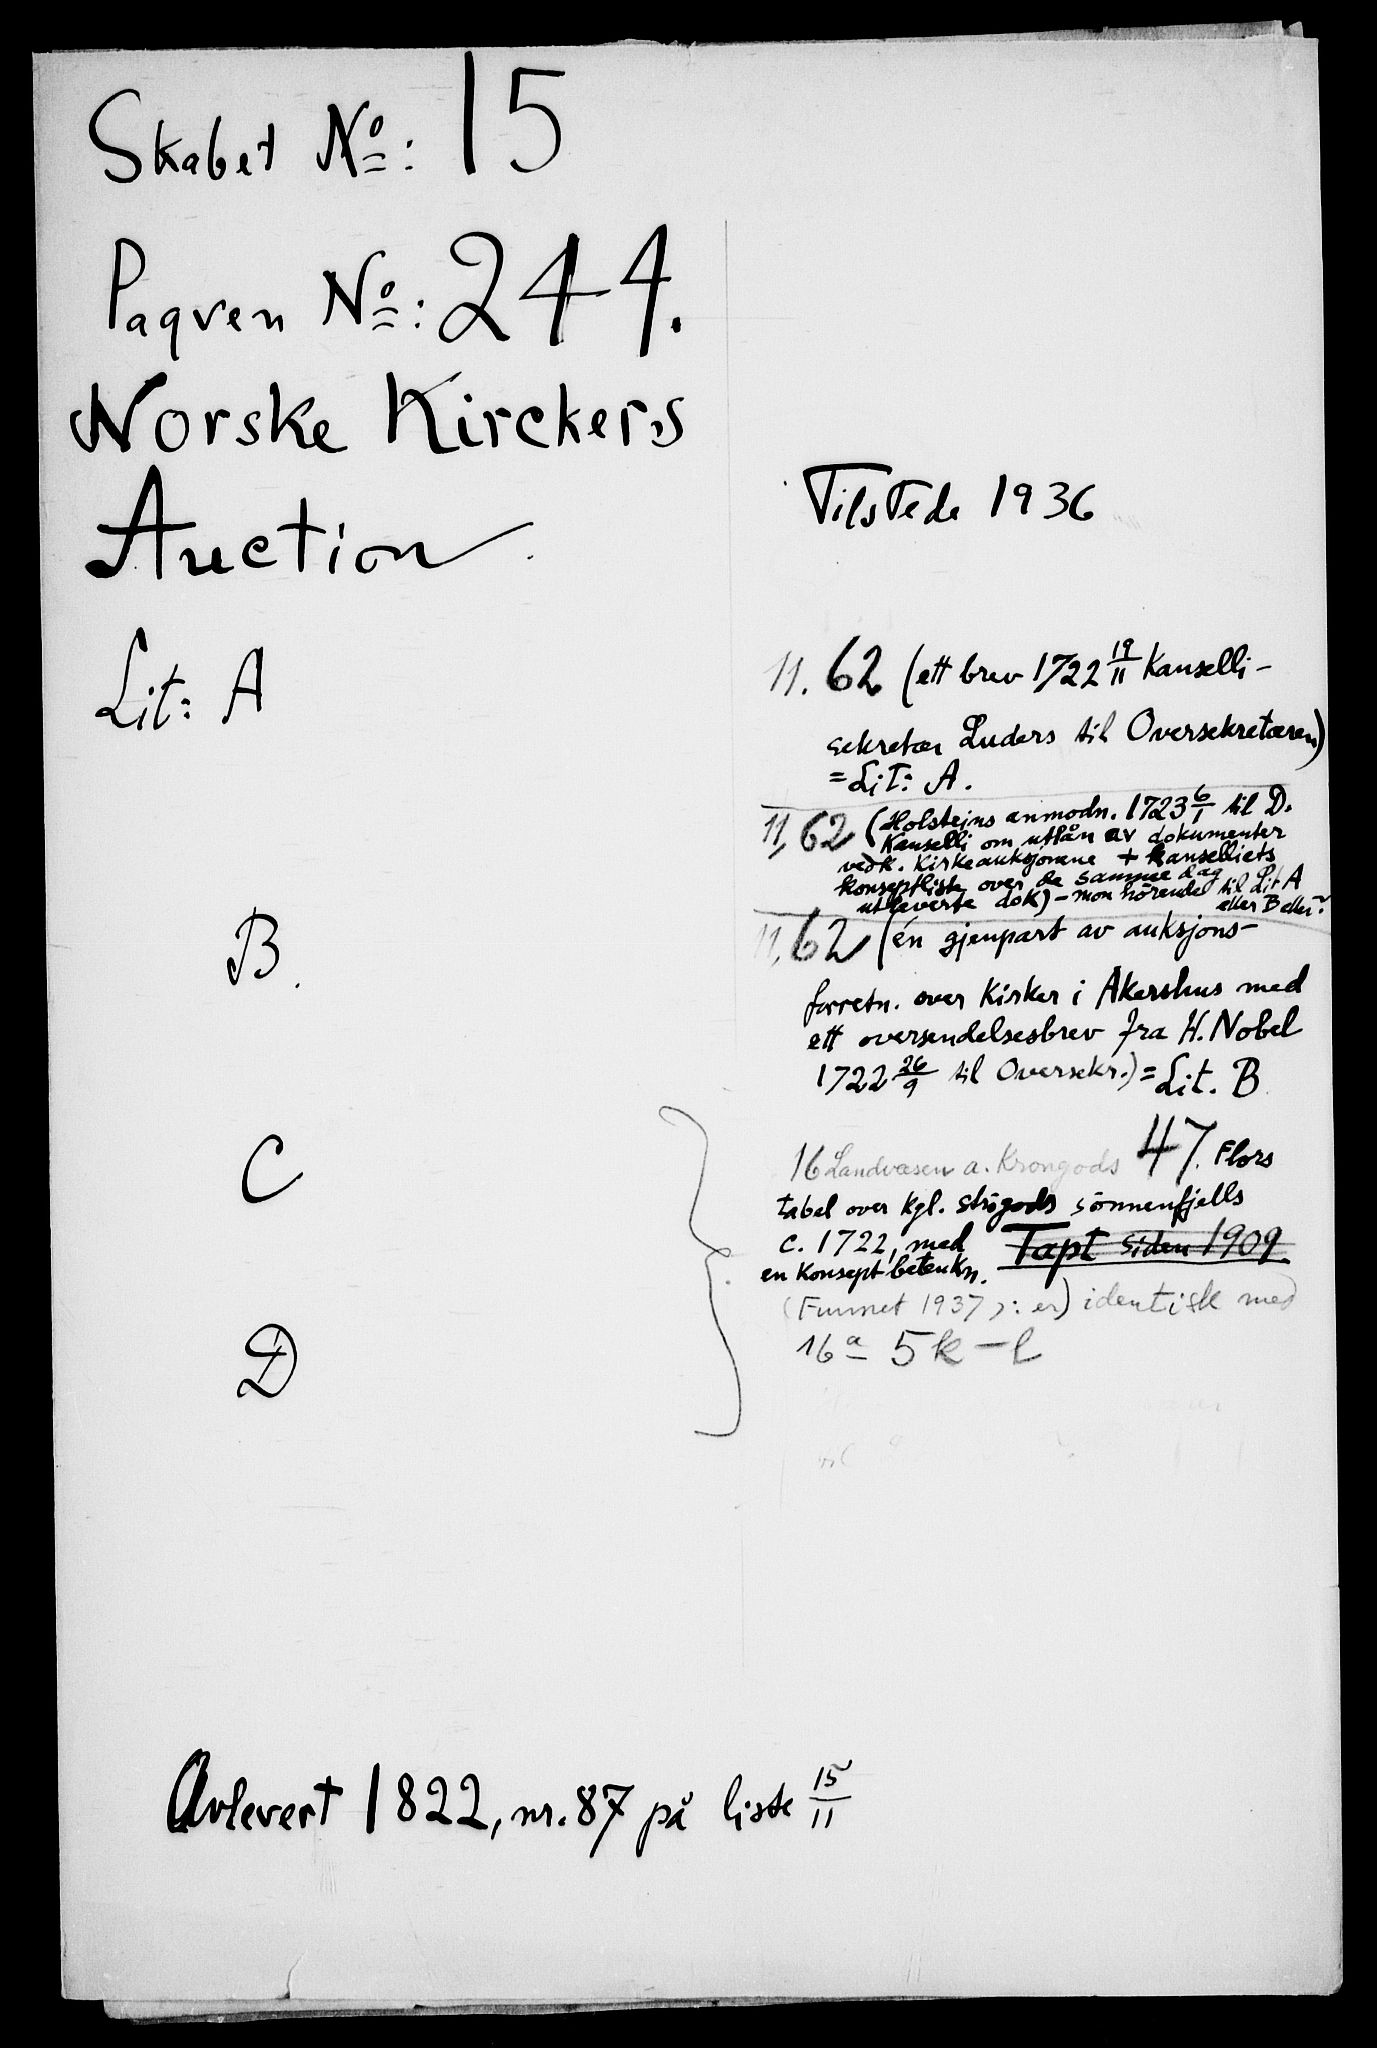 Skabet No: 15
Paqven No: 244.
Norske Kirckers
Auction
Lit: A
B.
C
D
Tilstede 1936
11. 62 (ett brev 1722 19/11 Kanselli-
sekretær Luders til Oversekretæren)
= Lit: A.
11, 62 (Holsteins anmodn. 1723 6/1 til D.
Kanselli om utlån av dokumenter
vedk. Kirkeauksjonene + kanselliets
konseptliste over de samme dag
utleverte dok) - mon hörende til Lit A
eller B eller?
11, 62 (én gjenpart av auksjons-
forretn. over Kirker i Akershus med
ett oversendelsesbrev fra H. Nobel
1722 26/9 til Oversekr.) = Lit. B
16 Landvæsen a. Krongods 47. Flors
tabel over kgl. strögods sönnenfjells
c. 1722, med Tapt siden 1909
en Konsept betenkn.
(Funnet 1937 ɔ: er) identisk med
16a 5k-l
Avlevert 1822, nr. 87 på liste 15/11